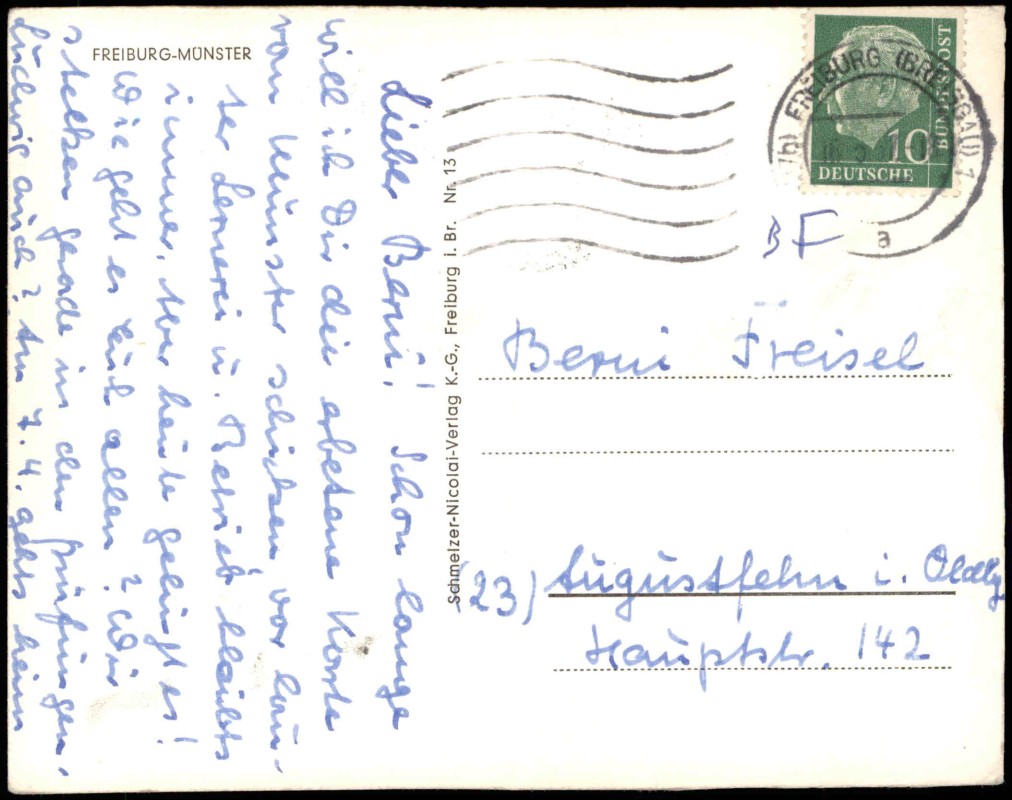 FREIBURG-MÜNSTER
Lieber Berni! Schon lange
will ich Dir die erbetene Karte
vom Münster schicken, vor lau-
ter Lernerei u. Betrieb bleibts
immer, aber heute gelingt es!
Wie geht es Euch allen? Wir
stecken gerade in den Prüfungen,
Ludwig auch? Am 7.4. gehts heim
Schmelzer-Nicolai-Verlag K.-G., Freiburg i. Br. Nr. 13
FREIBURG (BREISGAU) 1
a
BUNDESPOST
10
DEUTSCHE
BF
Berni Freisel
(23) Augustfehn i. Oldbg
Hauptstr. 142